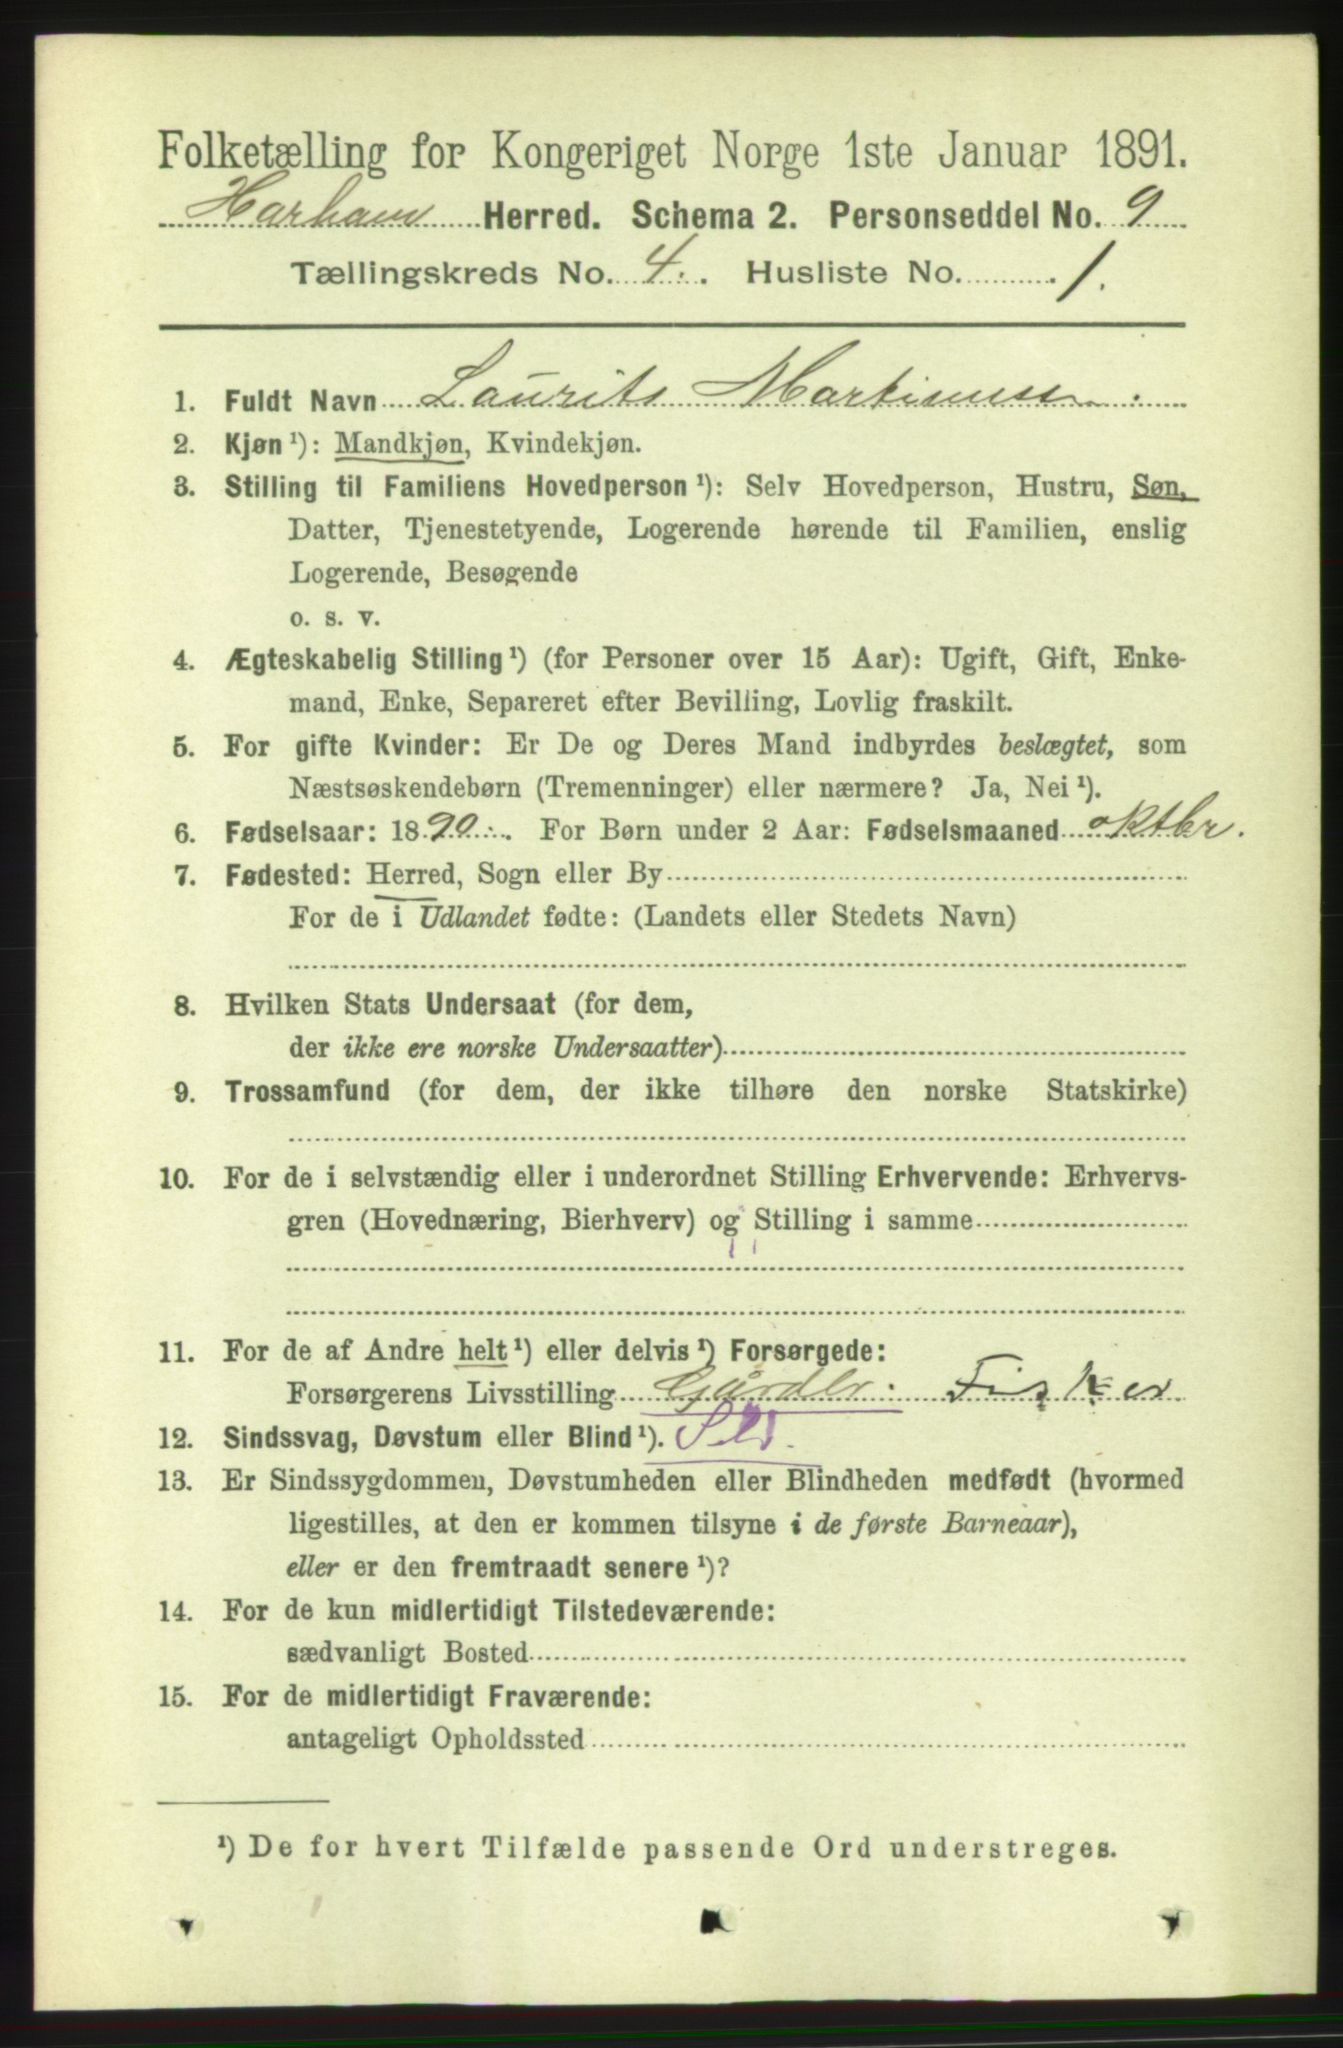 Folketælling for Kongeriget Norge 1ste Januar 1891.
Harham Herred. Schema 2. Personseddel No. 9
Tællingskreds No. 4. Husliste No. 1.
1. Fuldt Navn Laurits Martinussen
2. Kjøn ¹): Mandkjøn, Kvindekjøn.
3. Stilling til Familiens Hovedperson ¹): Selv Hovedperson, Hustru, Søn,
Datter, Tjenestetyende, Logerende hørende til Familien, enslig
Logerende, Besøgende
o. s. v.
4. Ægteskabelig Stilling ¹) (for Personer over 15 Aar): Ugift, Gift, Enke-
mand, Enke, Separeret efter Bevilling, Lovlig fraskilt.
5. For gifte Kvinder: Er De og Deres Mand indbyrdes beslægtet, som
Næstsøskendebørn (Tremenninger) eller nærmere? Ja, Nei ¹).
6. Fødselsaar: 1890. For Børn under 2 Aar: Fødselsmaaned oktbr.
7. Fødested: Herred, Sogn eller By
For de i Udlandet fødte: (Landets eller Stedets Navn)
8. Hvilken Stats Undersaat (for dem,
der ikke ere norske Undersaatter)
9. Trossamfund (for dem, der ikke tilhøre den norske Statskirke)
10. For de i selvstændig eller i underordnet Stilling Erhvervende: Erhvervs-
gren (Hovednæring, Bierhverv) og Stilling i samme
11. For de af Andre helt ¹) eller delvis ¹) Forsørgede:
Forsørgerens Livsstilling Gårdbr. Fisker
12. Sindssvag, Døvstum eller Blind ¹).
13. Er Sindssygdommen, Døvstumheden eller Blindheden medfødt (hvormed
ligestilles, at den er kommen tilsyne i de første Barneaar),
eller er den fremtraadt senere ¹)?
14. For de kun midlertidigt Tilstedeværende:
sædvanligt Bosted
15. For de midlertidigt Fraværende:
antageligt Opholdssted
¹) De for hvert Tilfælde passende Ord understreges.